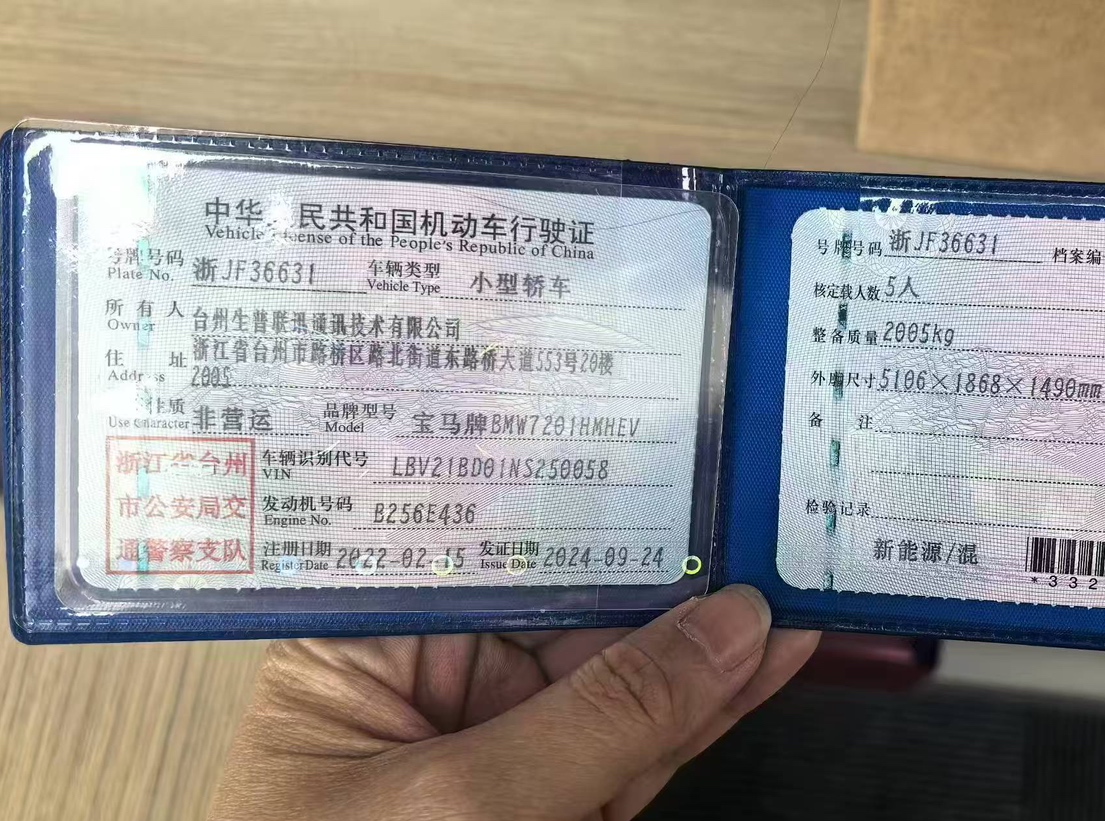 中华 民共和国机动车行驶证
Vehicle License of the People's Republic of China
号牌号码 浙JF36631 车辆类型 小型轿车
Plate No. Vehicle Type
所有人 台州生普联讯通讯技术有限公司
Owner
住址 浙江省台州市路桥区路北街道东路桥大道553号20楼
Address 2005
性质 非营运 品牌型号 宝马牌BMW7201HMHEV
Use Character Model
浙江省台州
市公安局交
通警察支队
车辆识别代号 LBV21BD01NS250058
VIN
发动机号码 B256E436
Engine No.
注册日期 2022-02-15 发证日期 2024-09-24
Register Date Issue Date
号牌号码 浙JF36631 档案编
核定载人数 5人
整备质量 2005kg
外廓尺寸 5106×1868×1490mm
备注
检验记录
新能源/混
*332